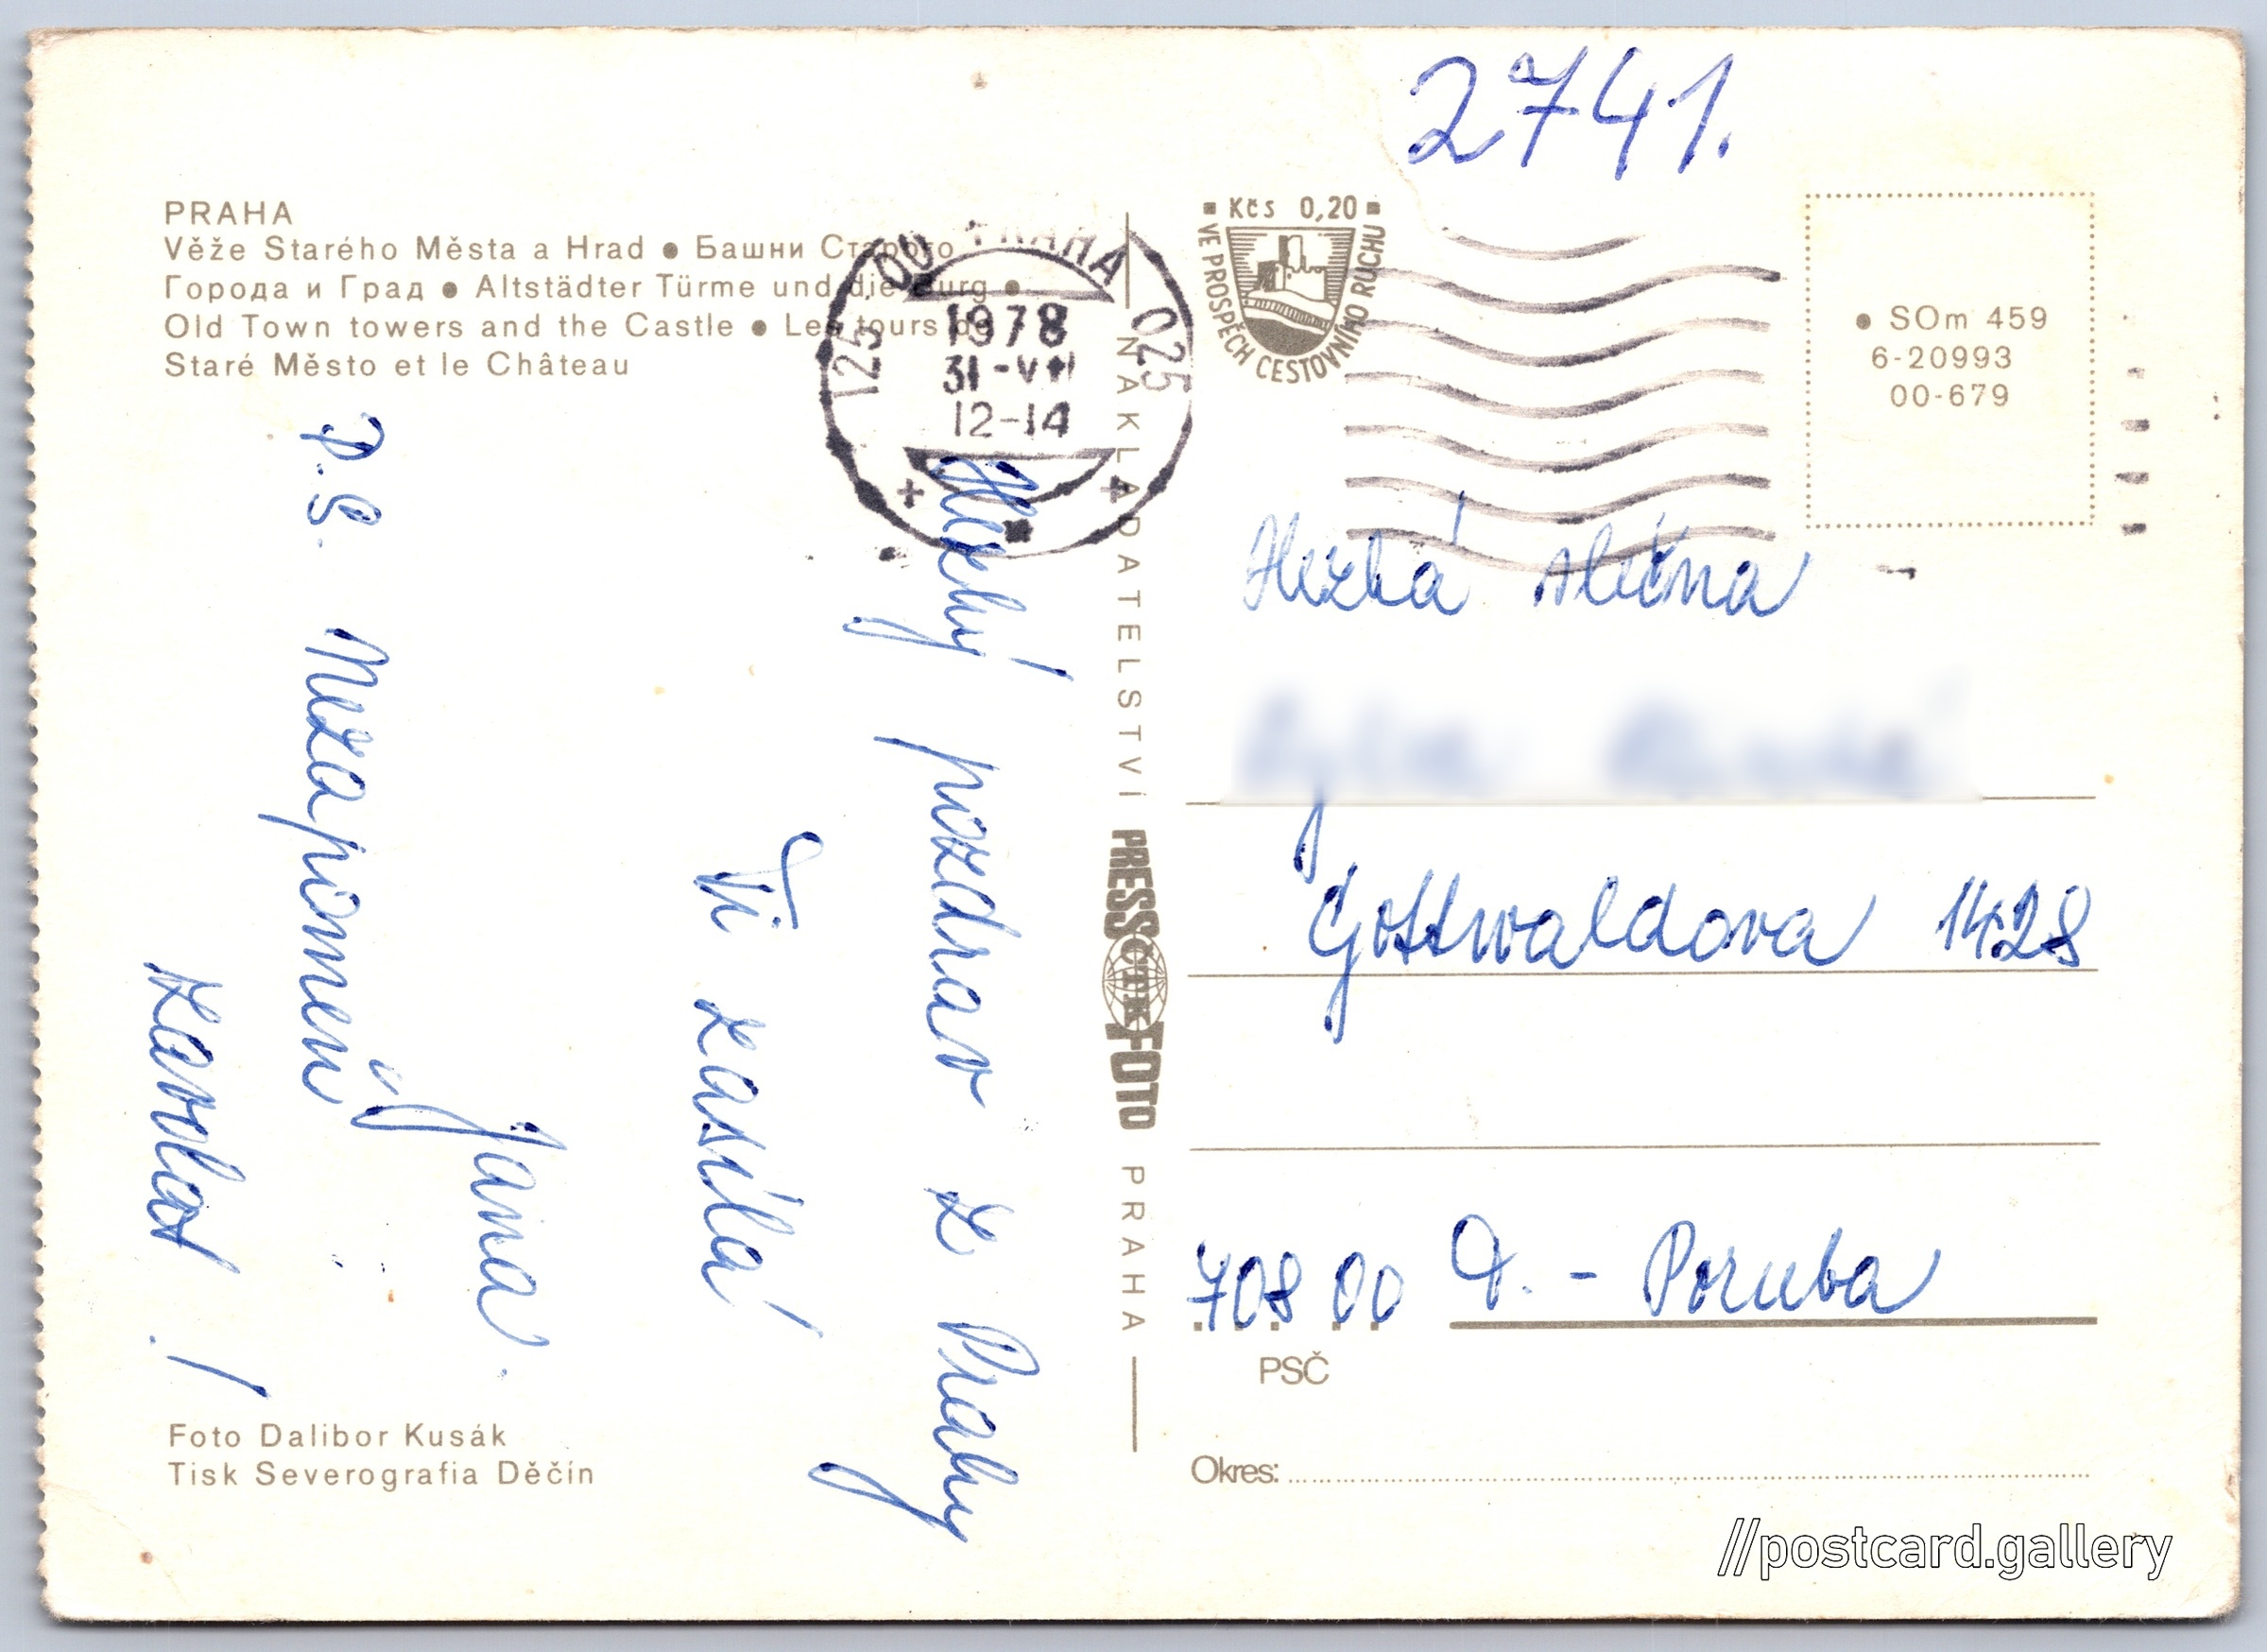 2741.
PRAHA
Věže Starého Města a Hrad ● Башни Старого
Города и Град ● Altstädter Türme und die Burg ●
Old Town towers and the Castle ● Les tours de
Staré Město et le Château
125 00 PRAHA 025
1978
31-VII
12-14
■ Kčs 0,20 ■
VE PROSPĚCH CESTOVNÍHO RUCHU
● SOm 459
6-20993
00-679
Hezký pozdrav z Prahy
Ti zasílá
Jana.
P.S. Nezapomeň
zavolat!
NAKLADATELSTVÍ PRESSFOTO PRAHA
ČTK
Hezká slečna
Gottwaldova 1428
708 00 O. - Poruba
PSČ
Okres:
Foto Dalibor Kusák
Tisk Severografia Děčín
//postcard.gallery